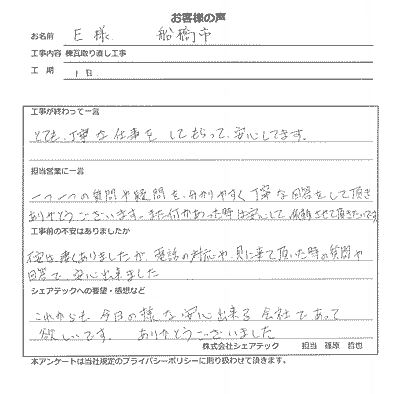 お客様の声
お名前 E 様 船橋市
工事内容 棟瓦取り直し工事
工 期 1日
工事が終わって一言
とても、丁寧な仕事をしてもらって、安心してます。
担当営業に一言
一つ一つの質問や疑問を、分かりやすく丁寧な回答をして頂き
ありがとうございます。また何かあった時は安心して、依頼させて頂きたいです
工事前の不安はありましたか
不安は多くありましたが、電話の対応や、見に来て頂いた時の質問や
回答で、安心出来ました
シェアテックへの要望・感想など
これからも今日の様な安心出来る会社であって
欲しいです。 ありがとうございました
株式会社シェアテック 担当 篠原 哲也
本アンケートは当社規定のプライバシーポリシーに則り扱わせて頂きます。